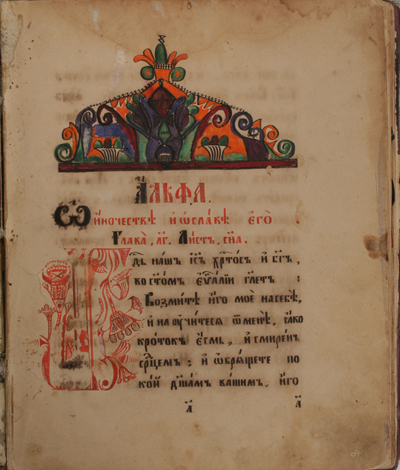 А҆́лѳа.
Ѡ҆ и҆́ночествѣ и҆ ѡ҆ славѣ є҆го̀.
Глава̀, л҃г. Листъ, с҃на.
гдⷭ҇ь нашъ і҆и҃съ хрⷭ҇то́въ и҆ бг҃ъ,
во ст҃омъ є҆ѵⷢ҇лїи гл҃етъ:
Возми́те и҆́го моѐ на себѣ̀,
и҆ наꙋчи́теся ѿ менѐ, ꙗ҆́ко
кро́токъ є҆́смь, и҆ смире́нъ
срⷣцемъ; и҆ ѡ҆брѧ́щете по
ко́й дш҃а́мъ ва́шимъ. и҆́го
а҃ а҃